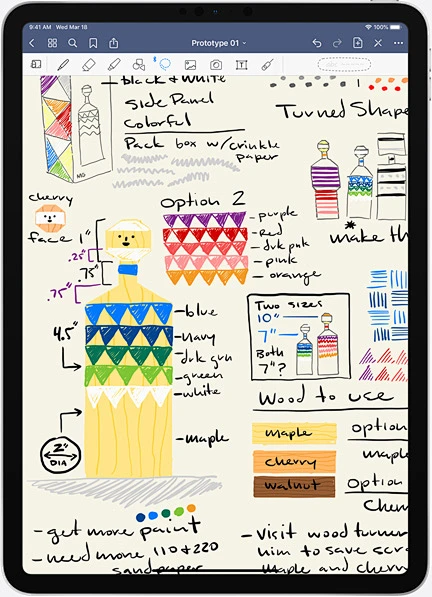 9:41 AM Wed Mar 18
100%
Prototype 01
black & white
side Panel
Colorful
Pack box w/crinkle
paper
MG
Turned Shape
cherry
face
Option 2
purple
Red
drk pnk
pink
orange
1"
.25"
.75"
.75"
4.5"
2"
DIA
blue
navy
drk grn
green
white
maple
make th
Two sizes
10"
7"
Both
7"?
Wood to use
maple
cherry
walnut
option
maple
Option
Cherr
- get more paint
- need more 110 & 220
sandpaper
- Visit wood turner
him to save scra
maple and cherry